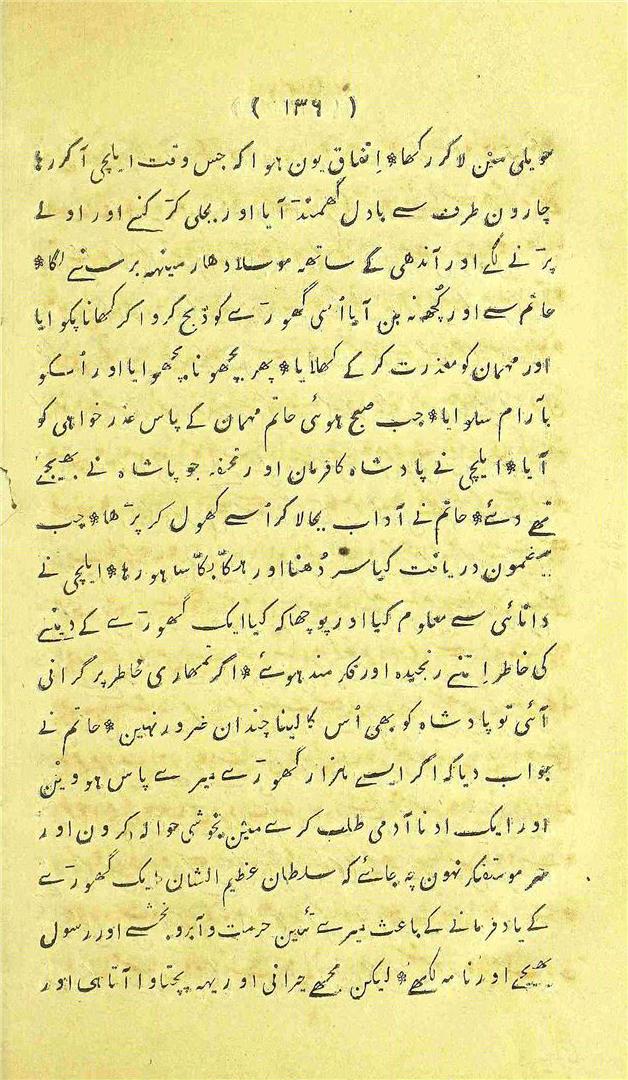 ( ۱۳۶ )
حویلی مین لاکر رکھا* اِتفاق یون ہوا کہ جس وقت ایلچی آکر رہا
چارون طرف سے بادل گھمنڈ آیا اور بجلی کڑکنے اور اولے
پڑنے لگے اور آندھی کے ساتھہ موسلادھار مینہہ برسنے لگا*
حاتم سے اور کُچھ نہ بن آیا اُسی گھوڑے کو ذبح کروا کر کھانا پکوایا
اور مہمان کو معذرت کر کے کھلایا* پھر بچھونا بچھوایا اور اُسکو
بآرام سلوایا* جب صبح ہوئی حاتم مہمان کے پاس عذر خواہی کو
آیا* ایلچی نے پادشاہ کا فرمان اور تحفہ جو پاشاہ نے بھیجے
تھے دئے* حاتم نے آداب بجالا کر اُسے کھول کر پڑھا* جب
مضمون دریافت کیا سر دُھنا اور ہکّا بکّا سا ہو رہا* ایلچی نے
دانائی سے معلوم کیا اور پوچھا کہ کیا ایک گھوڑے کے دینے
کی خاطر اِتنے رنجیدہ اور فکر مند ہوئے* اگر تمھاری خاطر پر گرانی
آئی تو پادشاہ کو بھی اُس کا لینا چندان ضرور نہین* حاتم نے
جواب دیا کہ اگر ایسے ہزار گھوڑے میرے پاس ہووین
اور ایک ادنا آدمی طلب کرے مین بخوشی حوالہ کرون اور
سر مو متفکر نہون چہ جائے کہ سلطان عظیم الشان ایک گھوڑے
کے یاد فرمانے کے باعث میرے تئین حرمت و آبرو بخشے اور رسول
بھیجے اور نامہ لکھے* لیکن مجھے حیرانی اور یہہ پچتاوا آتا ہی اور